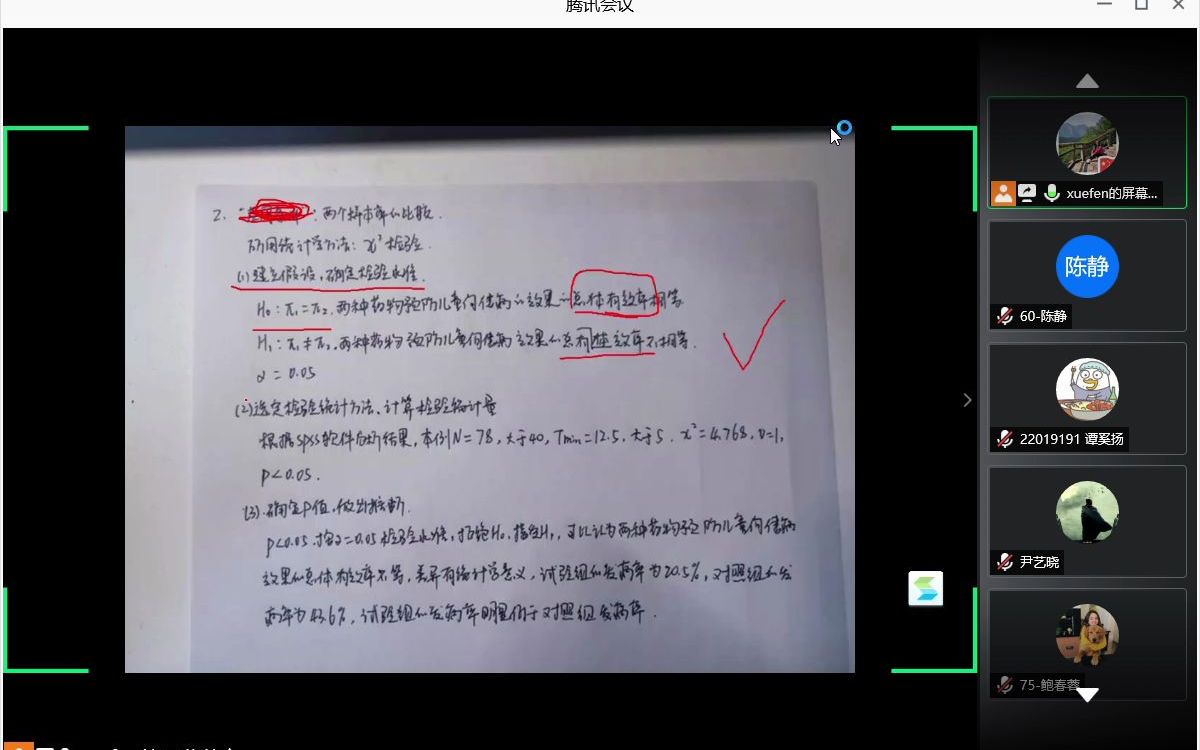 腾讯会议
2. :两个样本率的比较.
所用统计学方法: x²检验.
(1)建立假设,确定检验水准.
H₀: π₁=π₂, 两种药物预防儿童何佳病的效果的总体有效率相等
H₁: π₁≠π₂, 两种药物预防儿童何佳病效果的总有体效率不相等.
α = 0.05
(2)选定检验统计方法、计算检验统计量
根据SPSS软件分析结果,本例N=78,大于40,Tmin=12.5,大于5. x²=4.768, υ=1,
P<0.05.
(3).确定P值,做出推断.
P<0.05.按α=0.05检验水准,拒绝H₀,接受H₁,可以认为两种药物预防儿童何佳病
效果的总体有效率不等,差异有统计学意义,试验组的发病率为20.5%,对照组的发
病率为43.6%,试验组的发病率明显低于对照组发病率.
xuefen的屏幕...
陈静
60-陈静
22019191 谭奚扬
尹艺晓
75-鲍春蓉